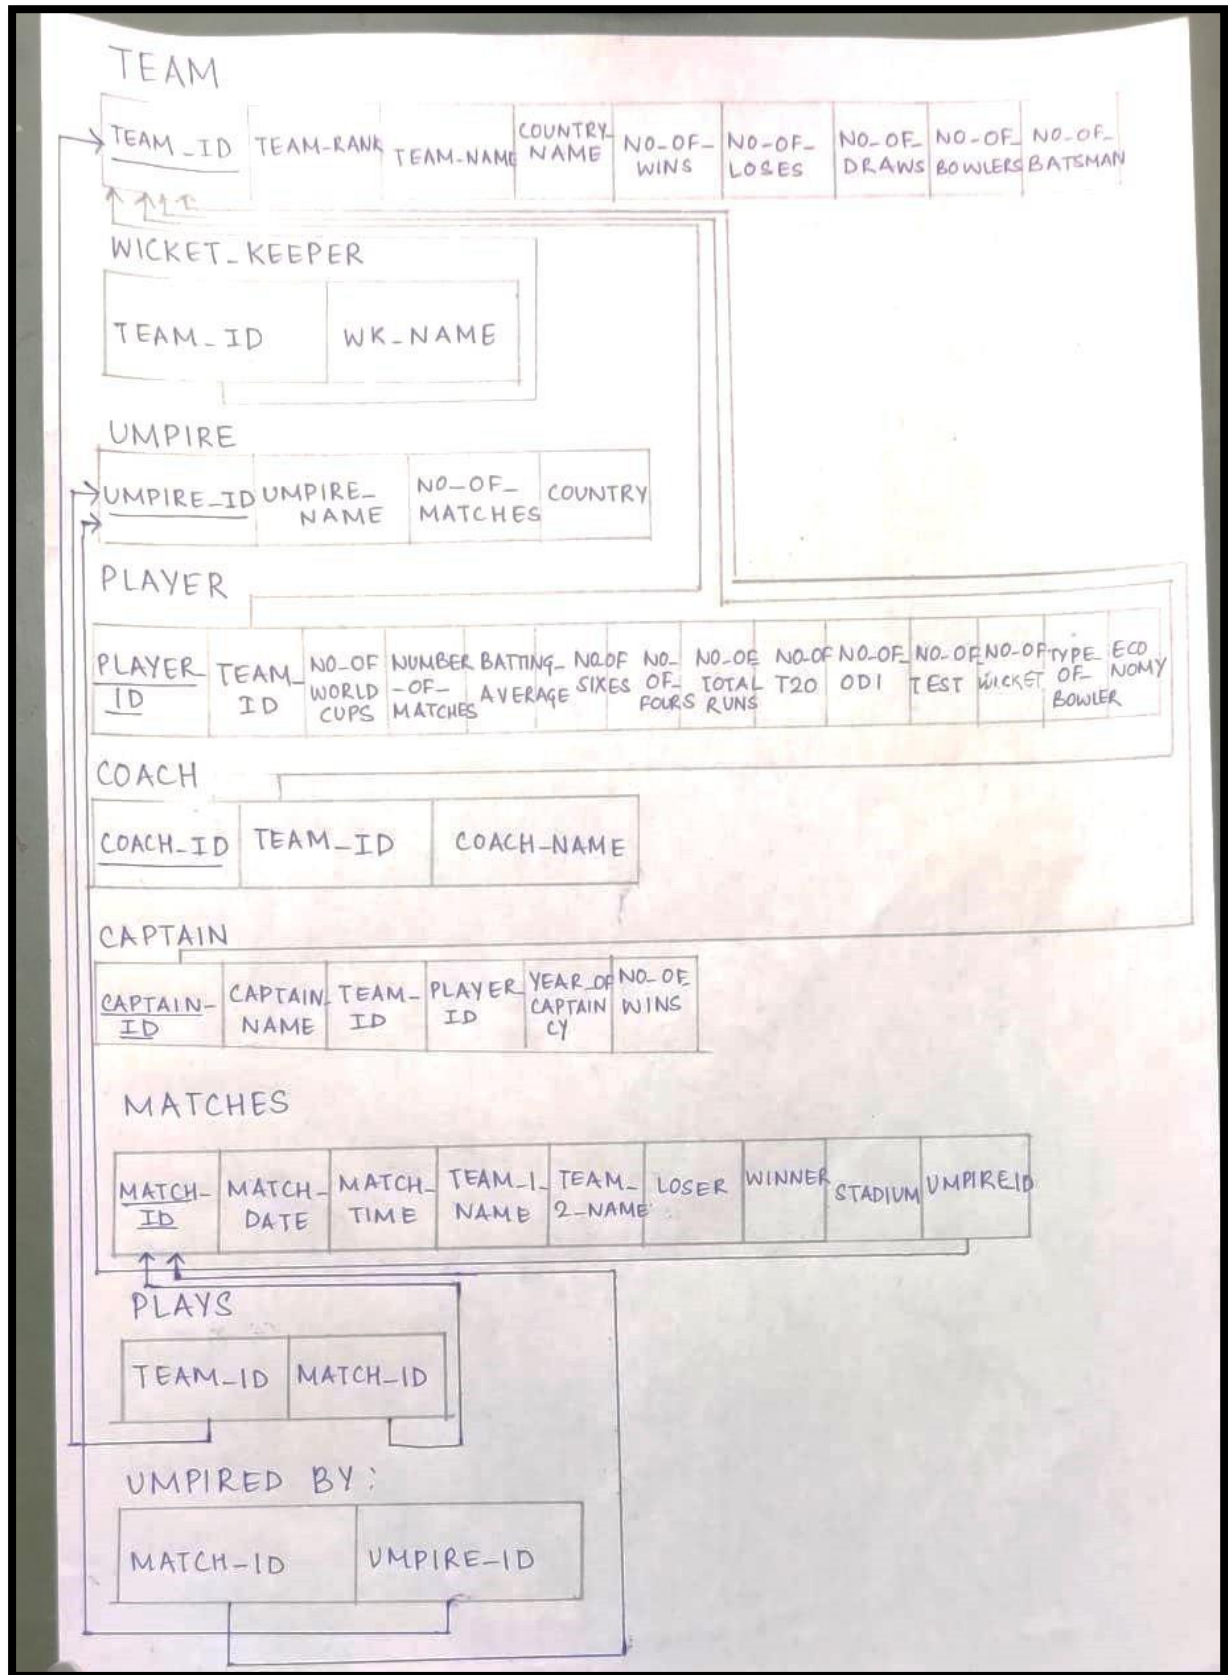 TEAM
TEAM_ID TEAM-RANK TEAM-NAME COUNTRY_ NAME NO-OF- WINS NO-OF- LOSES NO-OF- DRAWS NO-OF- BOWLERS NO-OF- BATSMAN
WICKET_KEEPER
TEAM_ID WK_NAME
UMPIRE
UMPIRE_ID UMPIRE_ NAME NO-OF_ MATCHES COUNTRY
PLAYER
PLAYER_ ID TEAM_ ID NO-OF WORLD CUPS NUMBER -OF- MATCHES BATTING_ AVERAGE NO.OF SIXES NO_ OF_ FOURS NO-OF TOTAL RUNS NO-OF T20 NO-OF_ ODI NO-OF TEST NO-OF WICKET TYPE_ OF_ BOWLER ECO NOMY
COACH
COACH_ID TEAM_ID COACH-NAME
CAPTAIN
CAPTAIN- ID CAPTAIN_ NAME TEAM- ID PLAYER_ ID YEAR_OF CAPTAIN CY NO-OF_ WINS
MATCHES
MATCH- ID MATCH- DATE MATCH- TIME TEAM-1- NAME TEAM- 2-NAME LOSER WINNER STADIUM UMPIREID
PLAYS
TEAM-ID MATCH-ID
UMPIRED BY:
MATCH-ID UMPIRE-ID